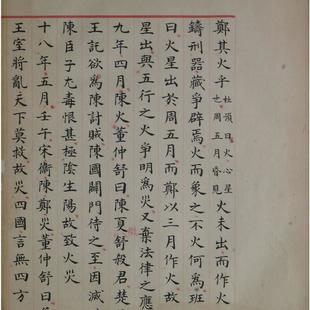 鄭其火乎杜預曰火心星也周五月昏見火未出而作火
鑄刑器藏爭辟焉火而象之不火何為班
曰火星出於周五月而鄭以三月作火故
星出與五行之火爭明為災又棄法律之應
九年四月陳火董仲舒曰陳夏舒殺君楚
王託欲為陳討賊陳國闢門待之至因滅
陳臣子尢毒恨甚極陰生陽故致火災
十八年五月壬午宋衛陳鄭災董仲舒曰
王室將亂天下莫救故災四國言無四方